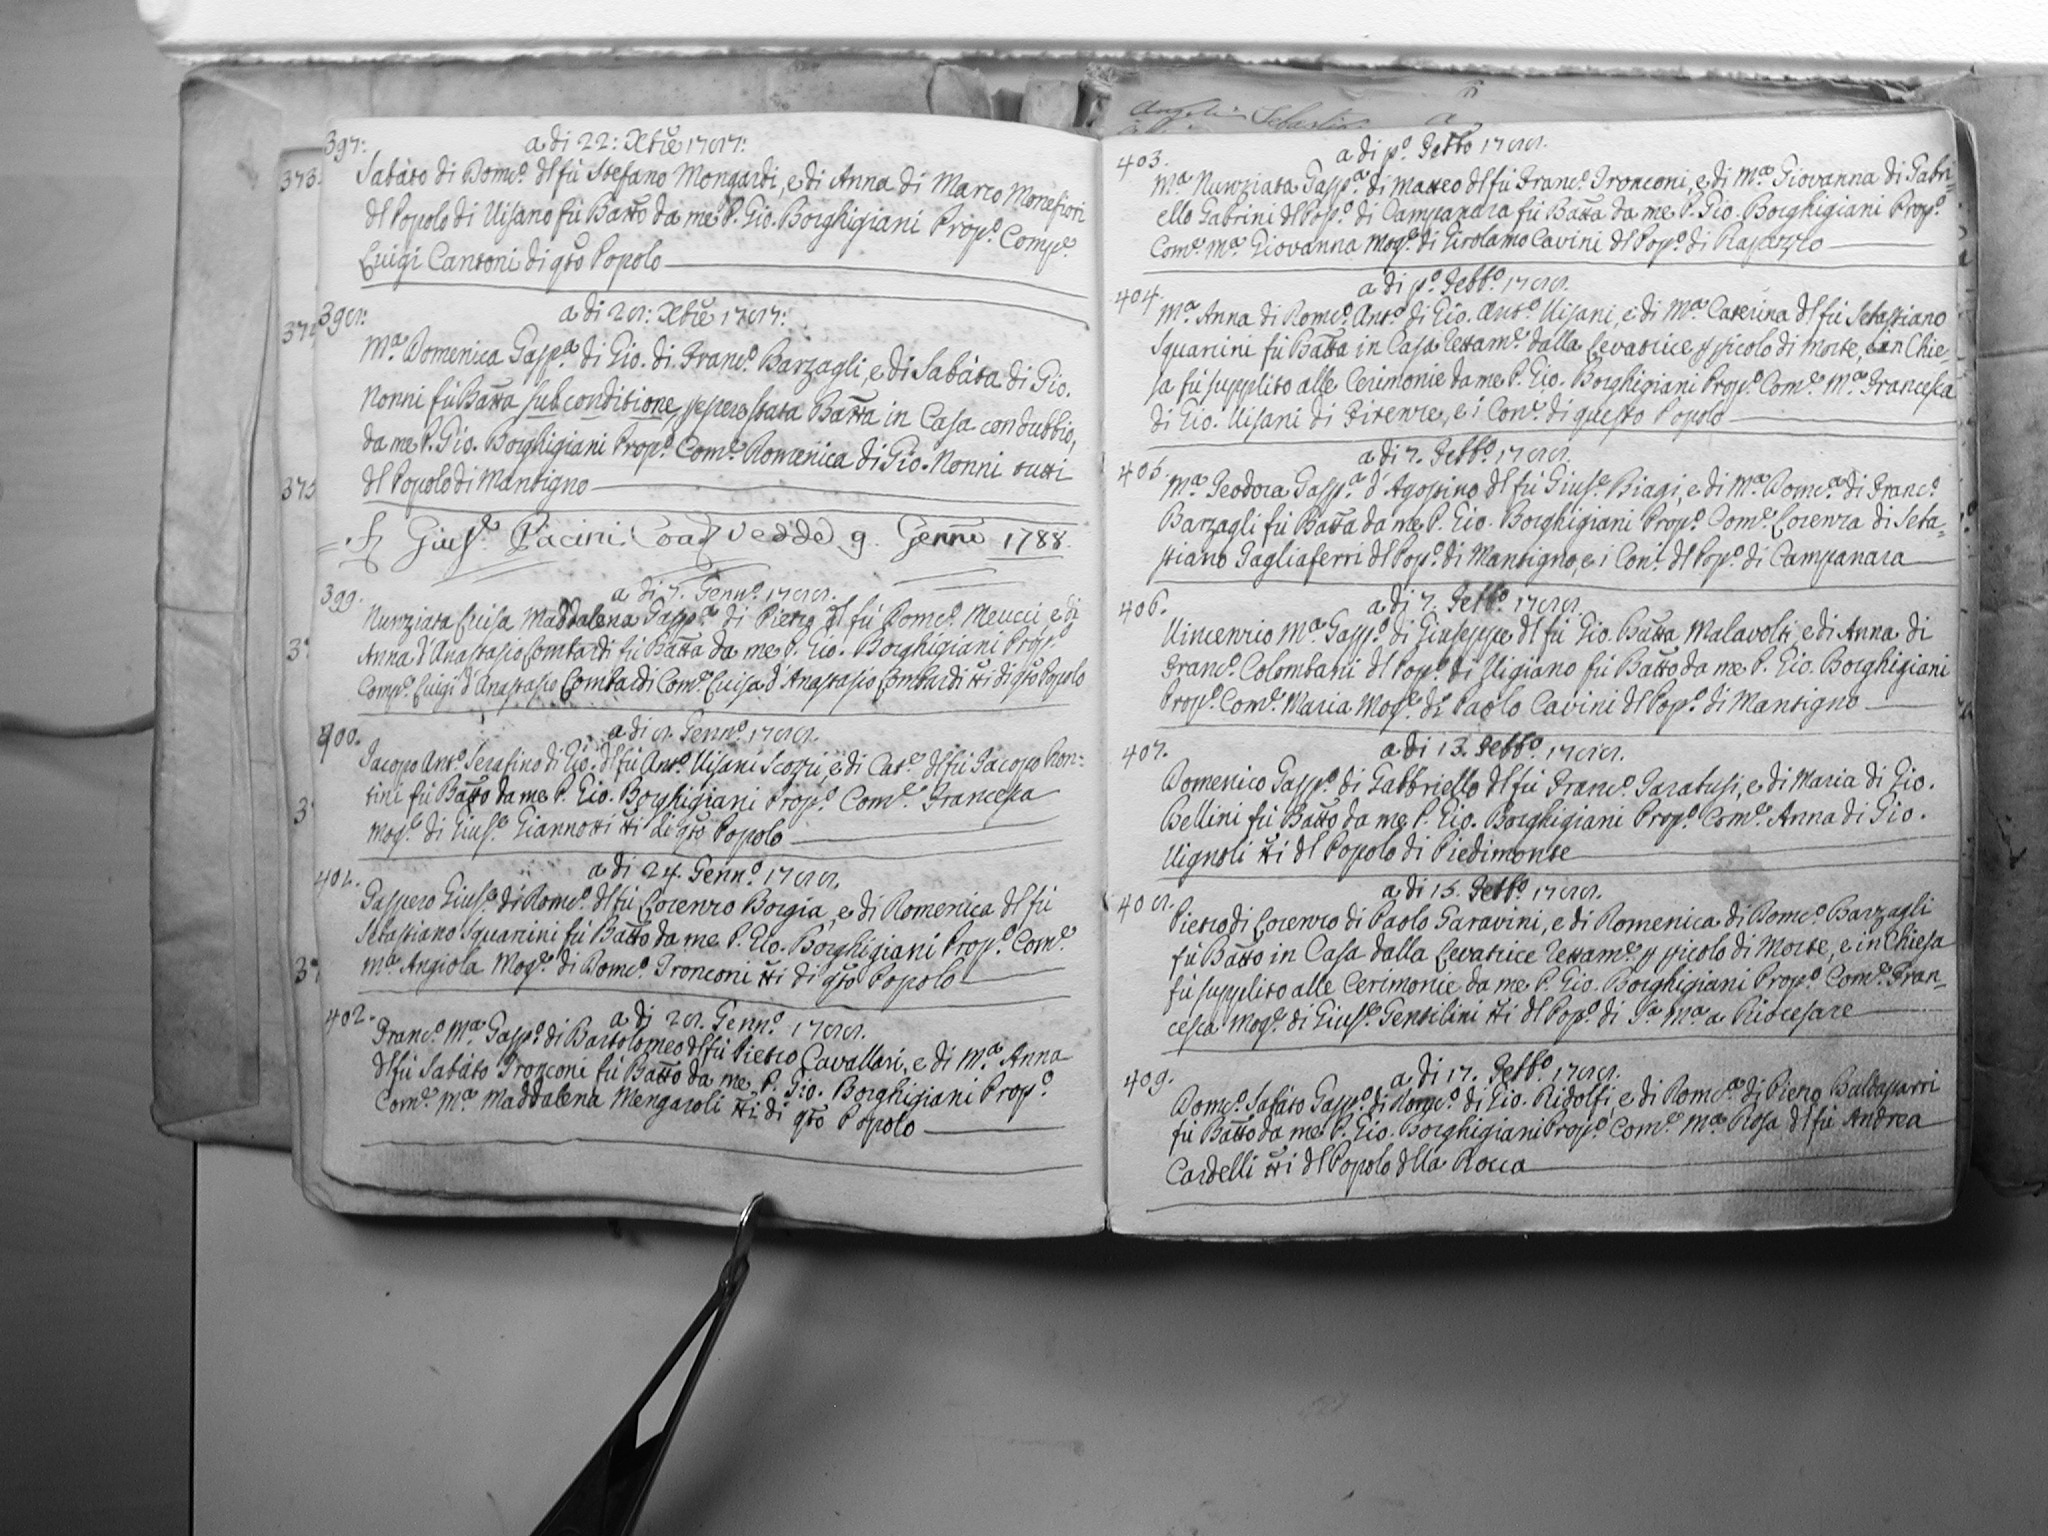 397:
a di 22: Xbre 1787:
Sabato di Domco. dl fù Stefano Mongardi, e di Anna di Marco Monefiori
dl Popolo di Visano fù Batto da me P. Gio. Borghigiani Propo. Compe.
Luigi Cantoni di qto Popolo
398:
a di 28: Xbre 1787:
Ma. Domenica Gaspa. di Gio. di Franco. Barzagli, e di Sabata di Gio.
Nonni fù Batta sub conditione, p essere stata Batta in Casa con dubbio,
da me P. Gio. Borghigiani Propo. Come. Domenica di Gio. Nonni tutti
dl Popolo di Mantigno
Giuse. Pacini Coad vedde 9. Genno 1788.
399.
a di 7. Genno. 1788.
Nunziata Luisa Maddalena Gaspa. di Pietro dl fù Domco. Meucci, e di
Anna d'Anastasio Lombardi fù Batta da me P. Gio. Borghigiani Prop.
Compe. Luigi d'Anastasio Lombardi Come. Luisa d'Anastasio Lombardi tti di qto Popolo
400.
a di 8. Genno. 1788.
Jacopo Anto. Serafino di Gio. dl fù Anto. Visani Scozzi, e di Cate. dl fù Jacopo Ron-
tini fù Batto da me P. Gio. Borghigiani Propo. Come. Francesca
Moge. di Giuse. Giannotti tti di qto Popolo
401.
a di 24. Genno. 1788.
Gaspero Giuse. di Domco. dl fù Lorenzo Borgia, e di Domenica dl fù
Sebastiano Squarcini fù Batto da me P. Gio. Borghigiani Propo. Come.
Ma. Angiola Moge. di Domco. Tronconi tti di qto Popolo
402.
a di 28. Genno. 1788.
Franco. Ma. Gaspo. di Bartolomeo dl fù Pietro Cavallari, e di Ma. Anna
dl fù Sabato Tronconi fù Batto da me P. Gio. Borghigiani Propo.
Come. Ma. Maddalena Mengaroli tti di qto Popolo
403.
a di po. Febbo 1788.
Ma. Nunziata Gaspa. di Matteo dl fù Franco. Tronconi, e di Ma. Giovanna di Gabri-
ello Gabrini dl Popo. di Campanara fù Batta da me P. Gio. Borghigiani Propo.
Come. Ma. Giovanna Moge. di Girolamo Cavini dl Popo. di Rapazzo
404.
a di po. Febbo. 1788.
Ma. Anna di Domco. Anto. di Gio. Anto. Visani, e di Ma. Caterina dl fù Sebastiano
Squarcini fù Batta in Casa rettame. dalla Levatrice p picolo di Morte, e in Chie-
sa fù supplito alle Cerimonie da me P. Gio. Borghigiani Propo. Come. Ma. Francesca
di Gio. Visani di Firenze, e i Coni. di questo Popolo
405.
a di 7. Febbo. 1788.
Ma. Teodora Gaspa. d'Agostino dl fù Giuse. Biagi, e di Ma. Domca. di Franco.
Barzagli fù Batta da me P. Gio. Borghigiani Propo. Come. Lorenza di Seba-
stiano Tagliaferri dl Popo. di Mantigno, e i Coni. dl Popo. di Campanara
406.
a di 7. Febbo. 1788.
Vincenzio Ma. Gaspo. di Giuseppe dl fù Gio. Batta Malavolti, e di Anna di
Franco. Colombani dl Popo. di Vigiano fù Batto da me P. Gio. Borghigiani
Propo. Come. Maria Moge. di Paolo Cavini dl Popo. di Mantigno
407.
a di 13. Febbo. 1788.
Domenico Gaspo. di Gabbriello dl fù Franco. Farabusi, e di Maria di Gio.
Bellini fù Batto da me P. Gio. Borghigiani Propo. Come. Anna di Gio.
Vignoli tti dl Popolo di Piedimonte
408.
a di 15. Febbo. 1788.
Pietro di Lorenzo di Paolo Garavini, e di Domenica di Domco. Barzagli
fù Batto in Casa dalla Levatrice rettame. p picolo di Morte, e in Chiesa
fù supplito alle Cerimonie da me P. Gio. Borghigiani Propo. Come. Fran-
cesca Moge. di Giuse. Gentilini tti dl Popo. di Sa. Ma. a Riocesare
409.
a di 17. Febbo. 1788.
Domco. Sabato Gaspo. di Domco. di Gio. Ridolfi, e di Domca. di Pietro Baldassarri
fù Batto da me P. Gio. Borghigiani Propo. Come. Ma. Rosa dl fù Andrea
Cardelli tti dl Popolo dlla Rocca